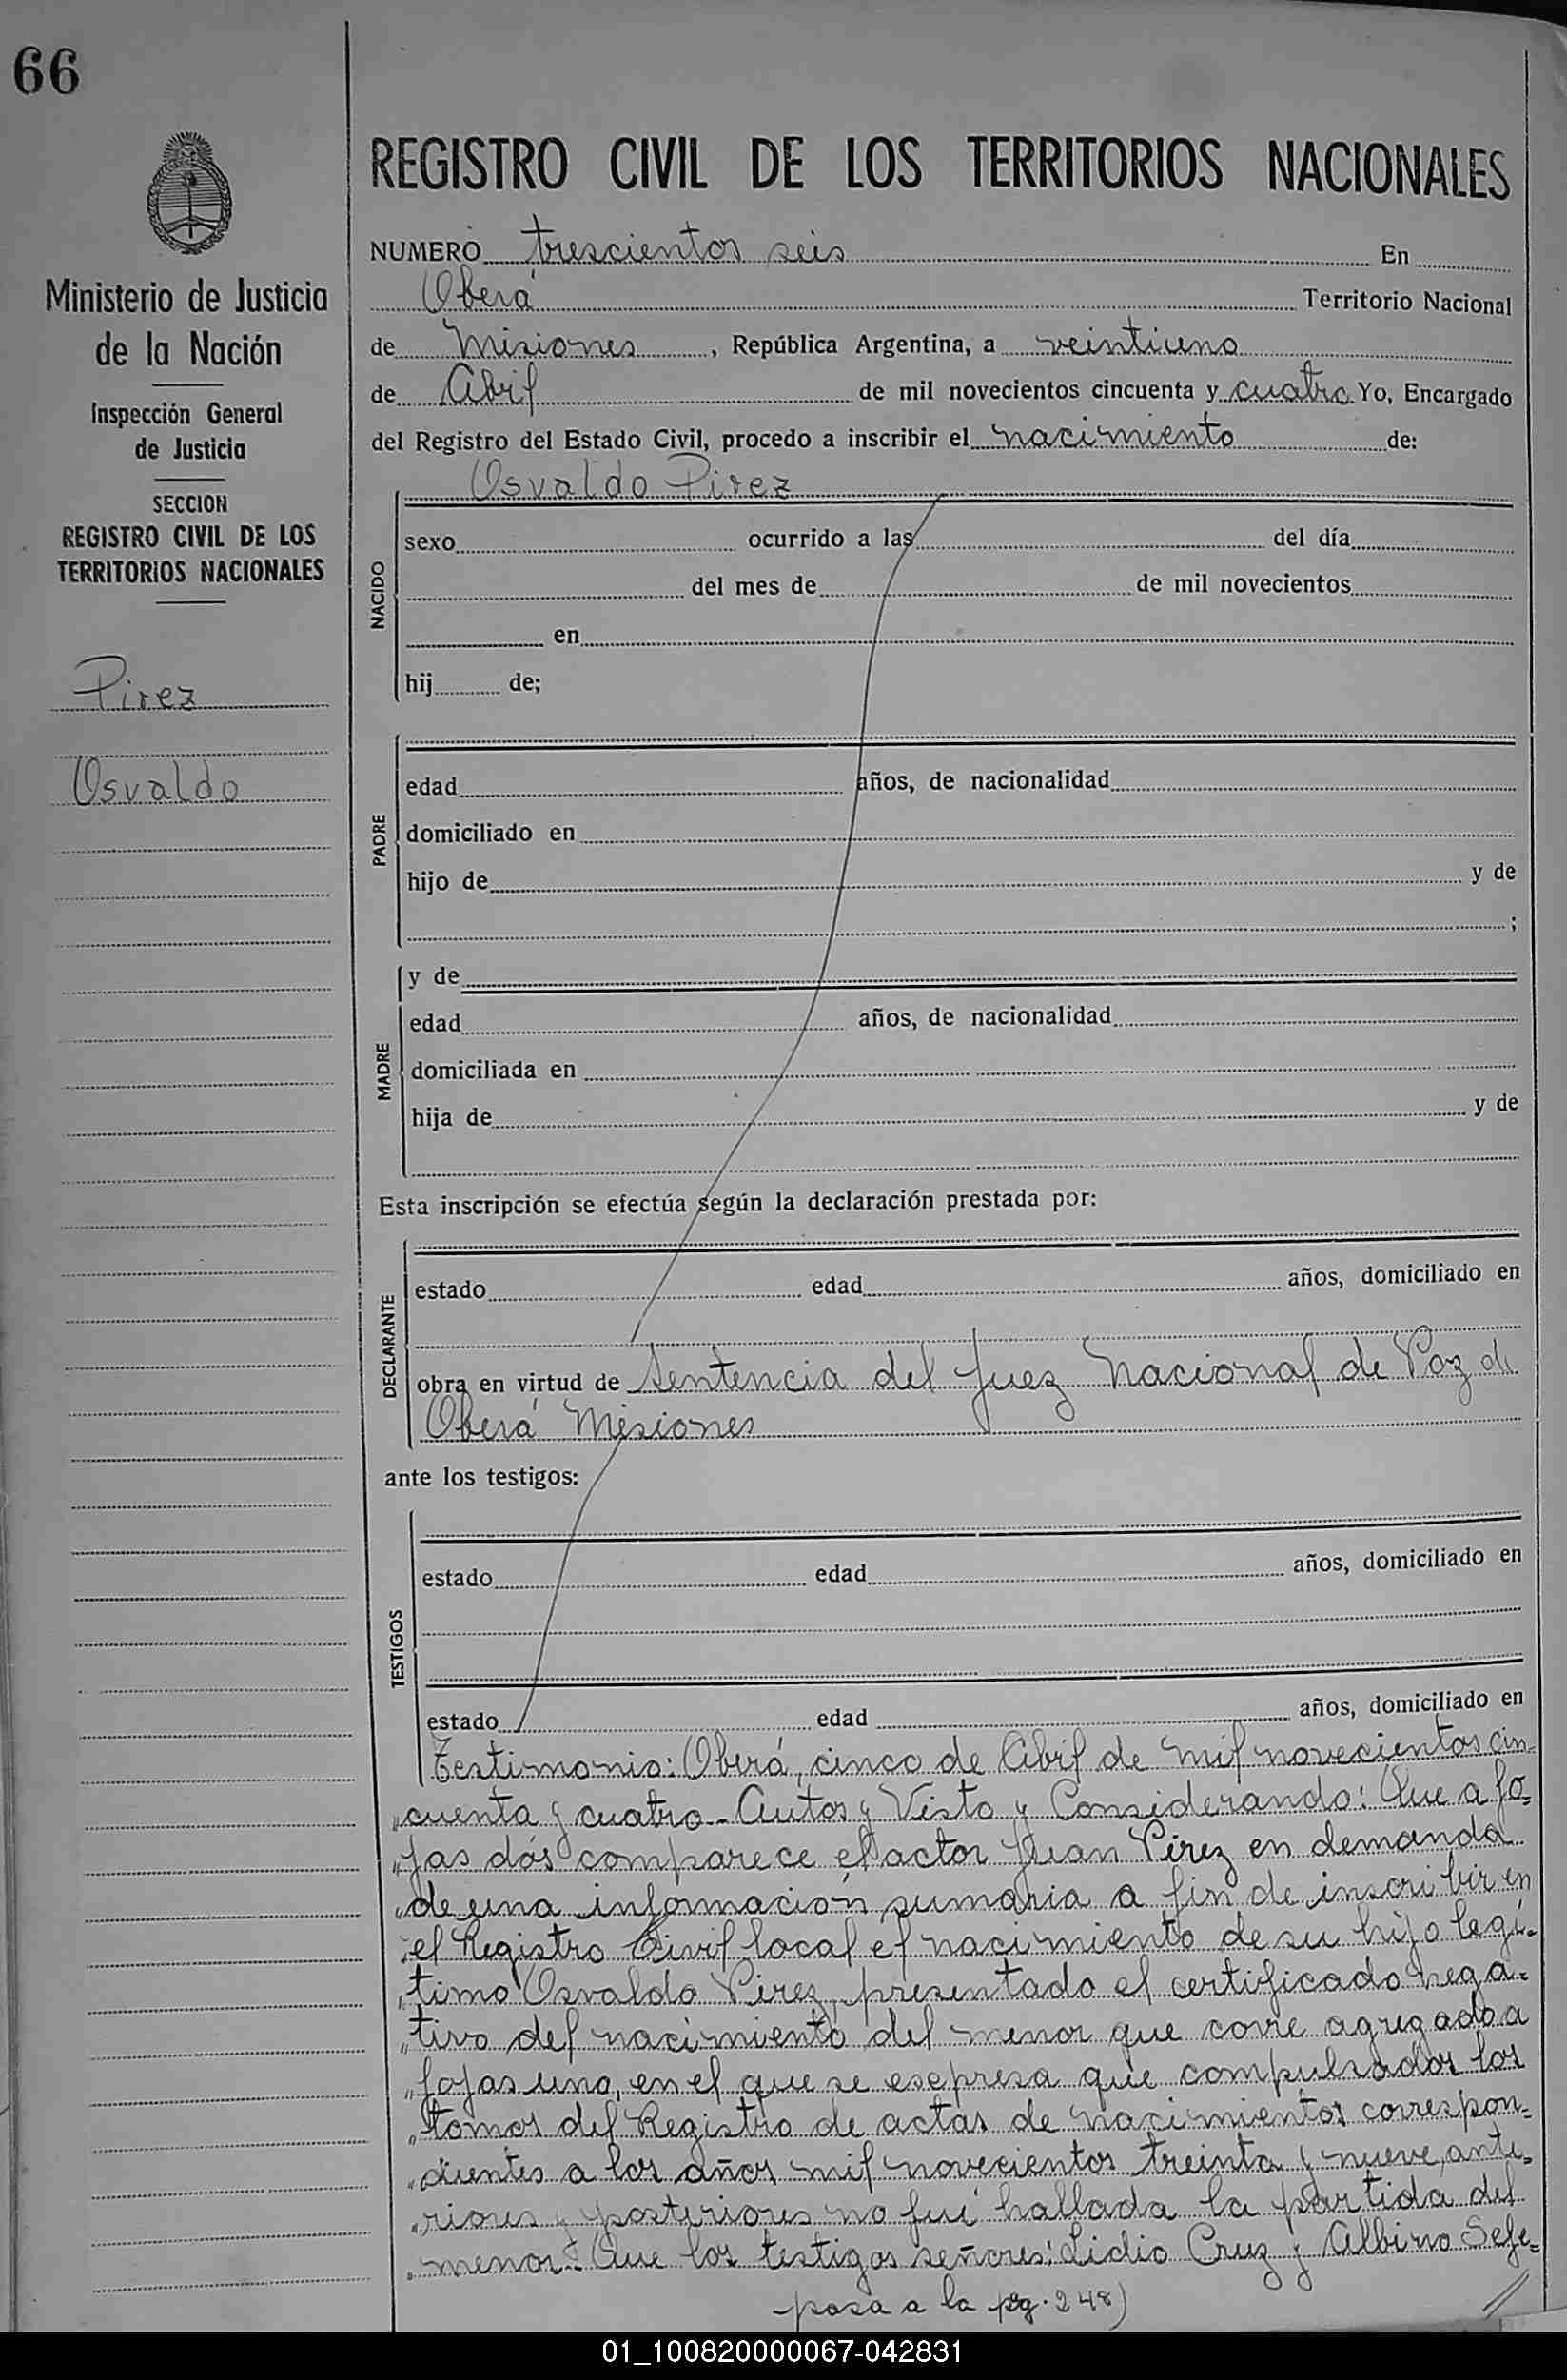 66
REGISTRO CIVIL DE LOS TERRITORIOS NACIONALES
Ministerio de Justicia
de la Nación
Inspección General
de Justicia
SECCION
REGISTRO CIVIL DE LOS
TERRITORIOS NACIONALES
Pirez
Osvaldo
NUMERO trescientos seis En
Oberá Territorio Nacional
de Misiones, República Argentina, a veintiuno
de Abril de mil novecientos cincuenta y cuatro Yo, Encargado
del Registro del Estado Civil, procedo a inscribir el nacimiento de:
Osvaldo Pirez
NACIDO
sexo ocurrido a las del día
del mes de de mil novecientos
en
hij de;
PADRE
edad años, de nacionalidad
domiciliado en
hijo de y de
;
MADRE
y de
edad años, de nacionalidad
domiciliada en
hija de y de
Esta inscripción se efectúa según la declaración prestada por:
DECLARANTE
estado edad años, domiciliado en
obra en virtud de Sentencia del Juez Nacional de Paz de
Oberá Misiones
ante los testigos:
TESTIGOS
estado edad años, domiciliado en
estado edad años, domiciliado en
Testimonio: Oberá, cinco de Abril de mil novecientos cin-
"cuenta y cuatro.- Autos y Visto y Considerando: Que a fo-
"jas dós comparece el actor Juan Pirez en demanda
"de una información sumaria a fin de inscribir en
"el Registro Civil local el nacimiento de su hijo legí-
"timo Osvaldo Pirez, presentado el certificado nega-
"tivo del nacimiento del menor que corre agregado a
"fojas uno, en el que se esepresa que compulsados los
"tomos del Registro de actas de nacimientos correspon-
"dientes a los años mil novecientos treinta y nueve, ante-
"riores y posteriores no fué hallada la partida del
"menor.- Que los testigos señores: Lidio Cruz y Albino Sefe-
pasa a la pág. 248)
01_100820000067-042831